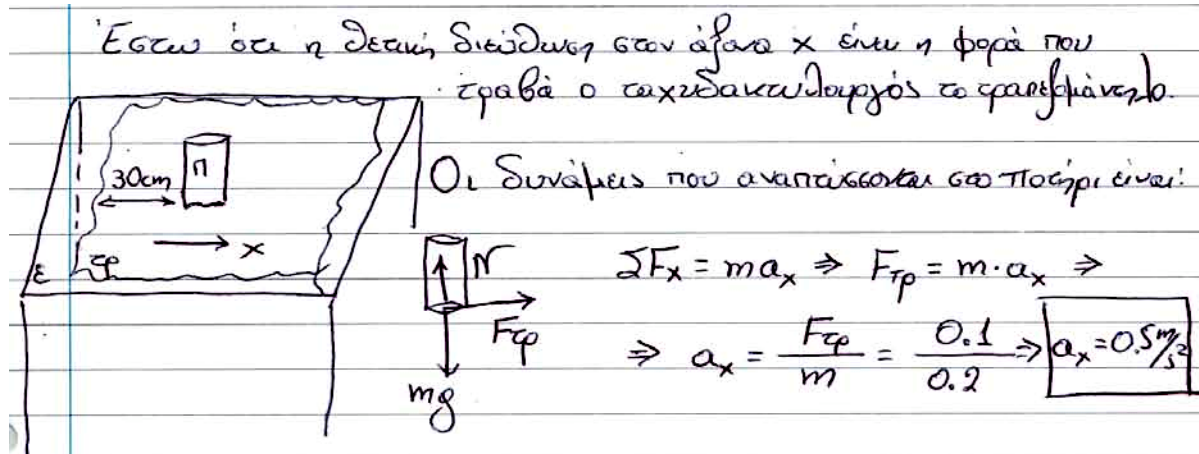 Έστω ότι η θετική διεύθυνση στον άξονα x είναι η φορά που
τραβά ο ταχυδακτυλουργός το τραπεζομάντηλο.
30cm Π
Οι δυνάμεις που αναπτύσσονται στο ποτήρι είναι:
ε τρ → x
N
ΣF_x = ma_x ⇒ F_τρ = m·a_x ⇒
F_τρ
⇒ a_x = F_τρ/m = 0.1/0.2 ⇒ a_x = 0.5 m/s²
mg